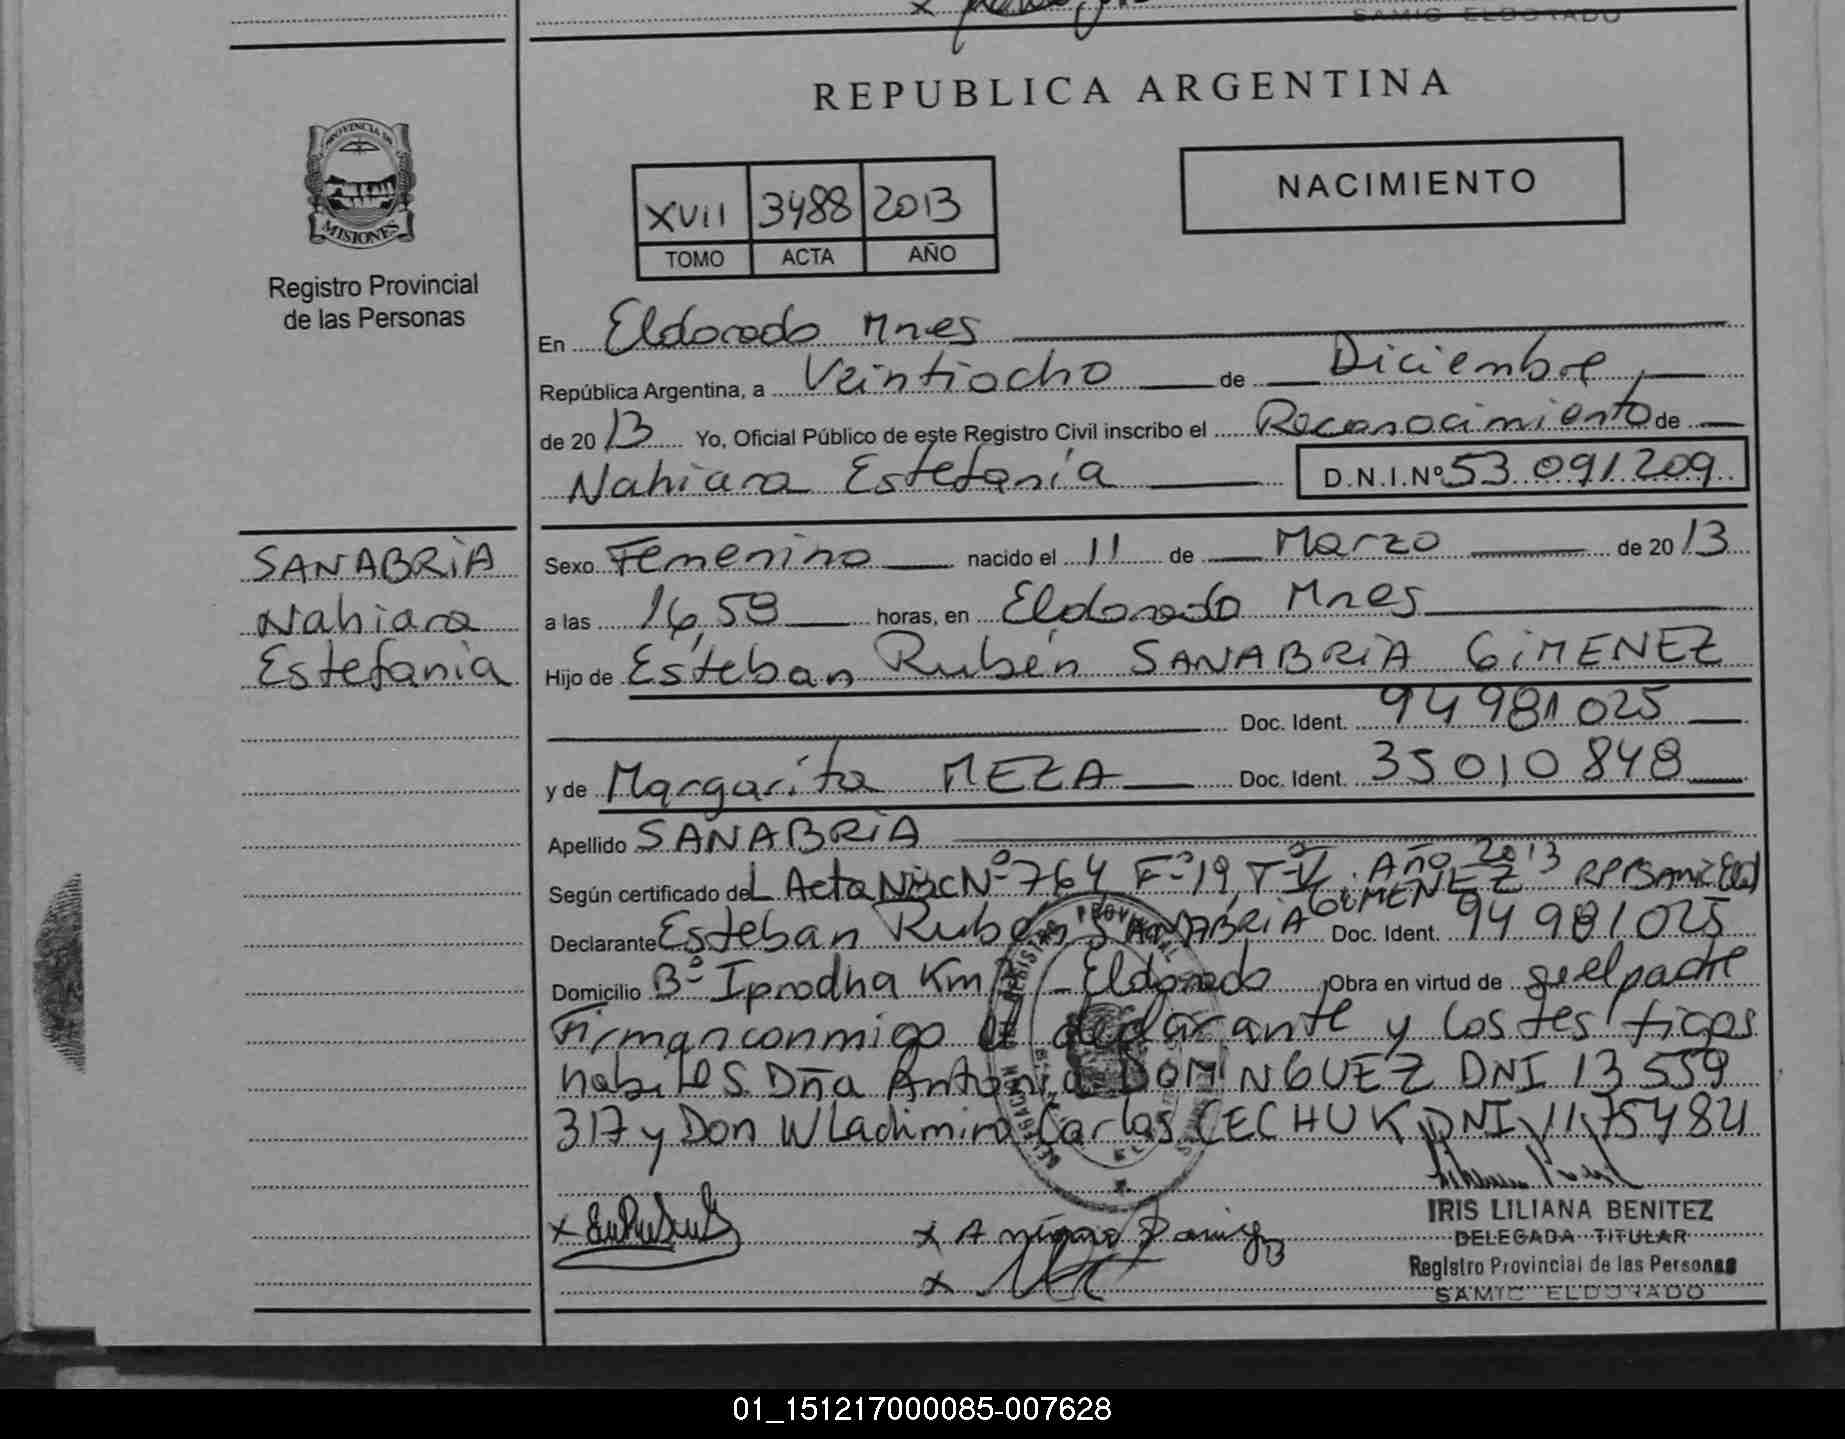 SAMIC ELDORADO
REPUBLICA ARGENTINA
PROVINCIA DE
MISIONES
Registro Provincial
de las Personas
XVII 3488 2013
TOMO ACTA AÑO
NACIMIENTO
En Eldorado Mnes
República Argentina, a Veintiocho de Diciembre
de 2013 Yo, Oficial Público de este Registro Civil inscribo el Reconocimiento de
Nahiara Estefanía D.N.I.Nº 53.091.209
SANABRIA
Nahiara
Estefania
Sexo Femenino nacido el 11 de Marzo de 2013
a las 16,59 horas, en Eldorado Mnes
Hijo de Esteban Rubén SANABRIA GIMENEZ
Doc. Ident. 94 981 025
y de Margarita MEZA Doc. Ident. 35 010 848
Apellido SANABRIA
Según certificado del Acta Nac Nº 764 Fº 19, Tº V. Año 2013
Declarante Esteban Ruben SANABRIA GIMENEZ Doc. Ident. 94 981 025
Domicilio Bº Iprodha Km Eldorado Obra en virtud de que el padre
Firman conmigo el declarante y los testigos
habiles Dña Antonia DOMINGUEZ DNI 13 559
317 y Don Wladimiro Carlos CECHUK DNI 11 754 84
IRIS LILIANA BENITEZ
DELEGADA TITULAR
Registro Provincial de las Personas
SAMIC ELDORADO
01_151217000085-007628